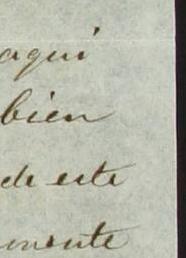 aqui
bien
de este
mente